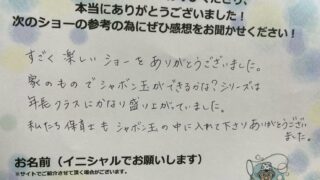 本当にありがとうございました！
次のショーの参考の為にぜひ感想をお聞かせください！
すごく楽しいショーをありがとうございました。
家のものでシャボン玉ができるかな？シリーズは
年長クラスにかなり盛り上がっていました。
私たち保育士もシャボン玉の中に入れて下さりありがとうござい
ました。
お名前（イニシャルでお願いします）
※サイトでご紹介させて頂く場合がございます。